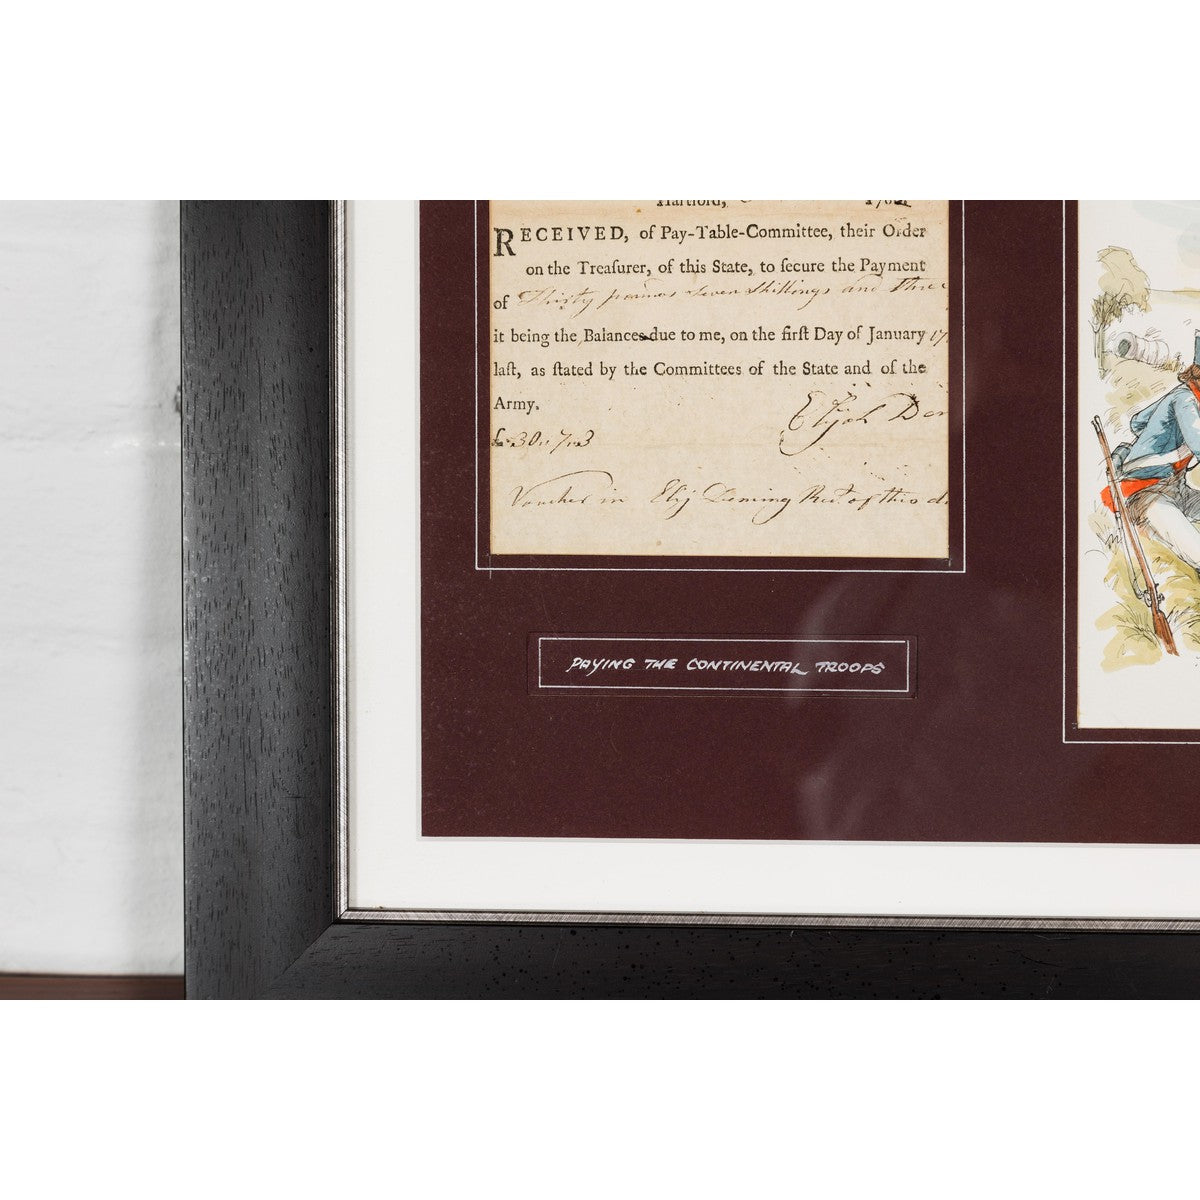 Hartford,
RECEIVED, of Pay-Table-Committee, their Order
on the Treaſurer, of this State, to ſecure the Payment
of Thirty pounds Seven Shillings and three
it being the Balances due to me, on the firſt Day of January 17
laſt, as ſtated by the Committees of the State and of the
Army.
Elijah Dem
£ 30 " 7 " 3
Voucher in Elij Deming Rect. of this d
PAYING THE CONTINENTAL TROOPS